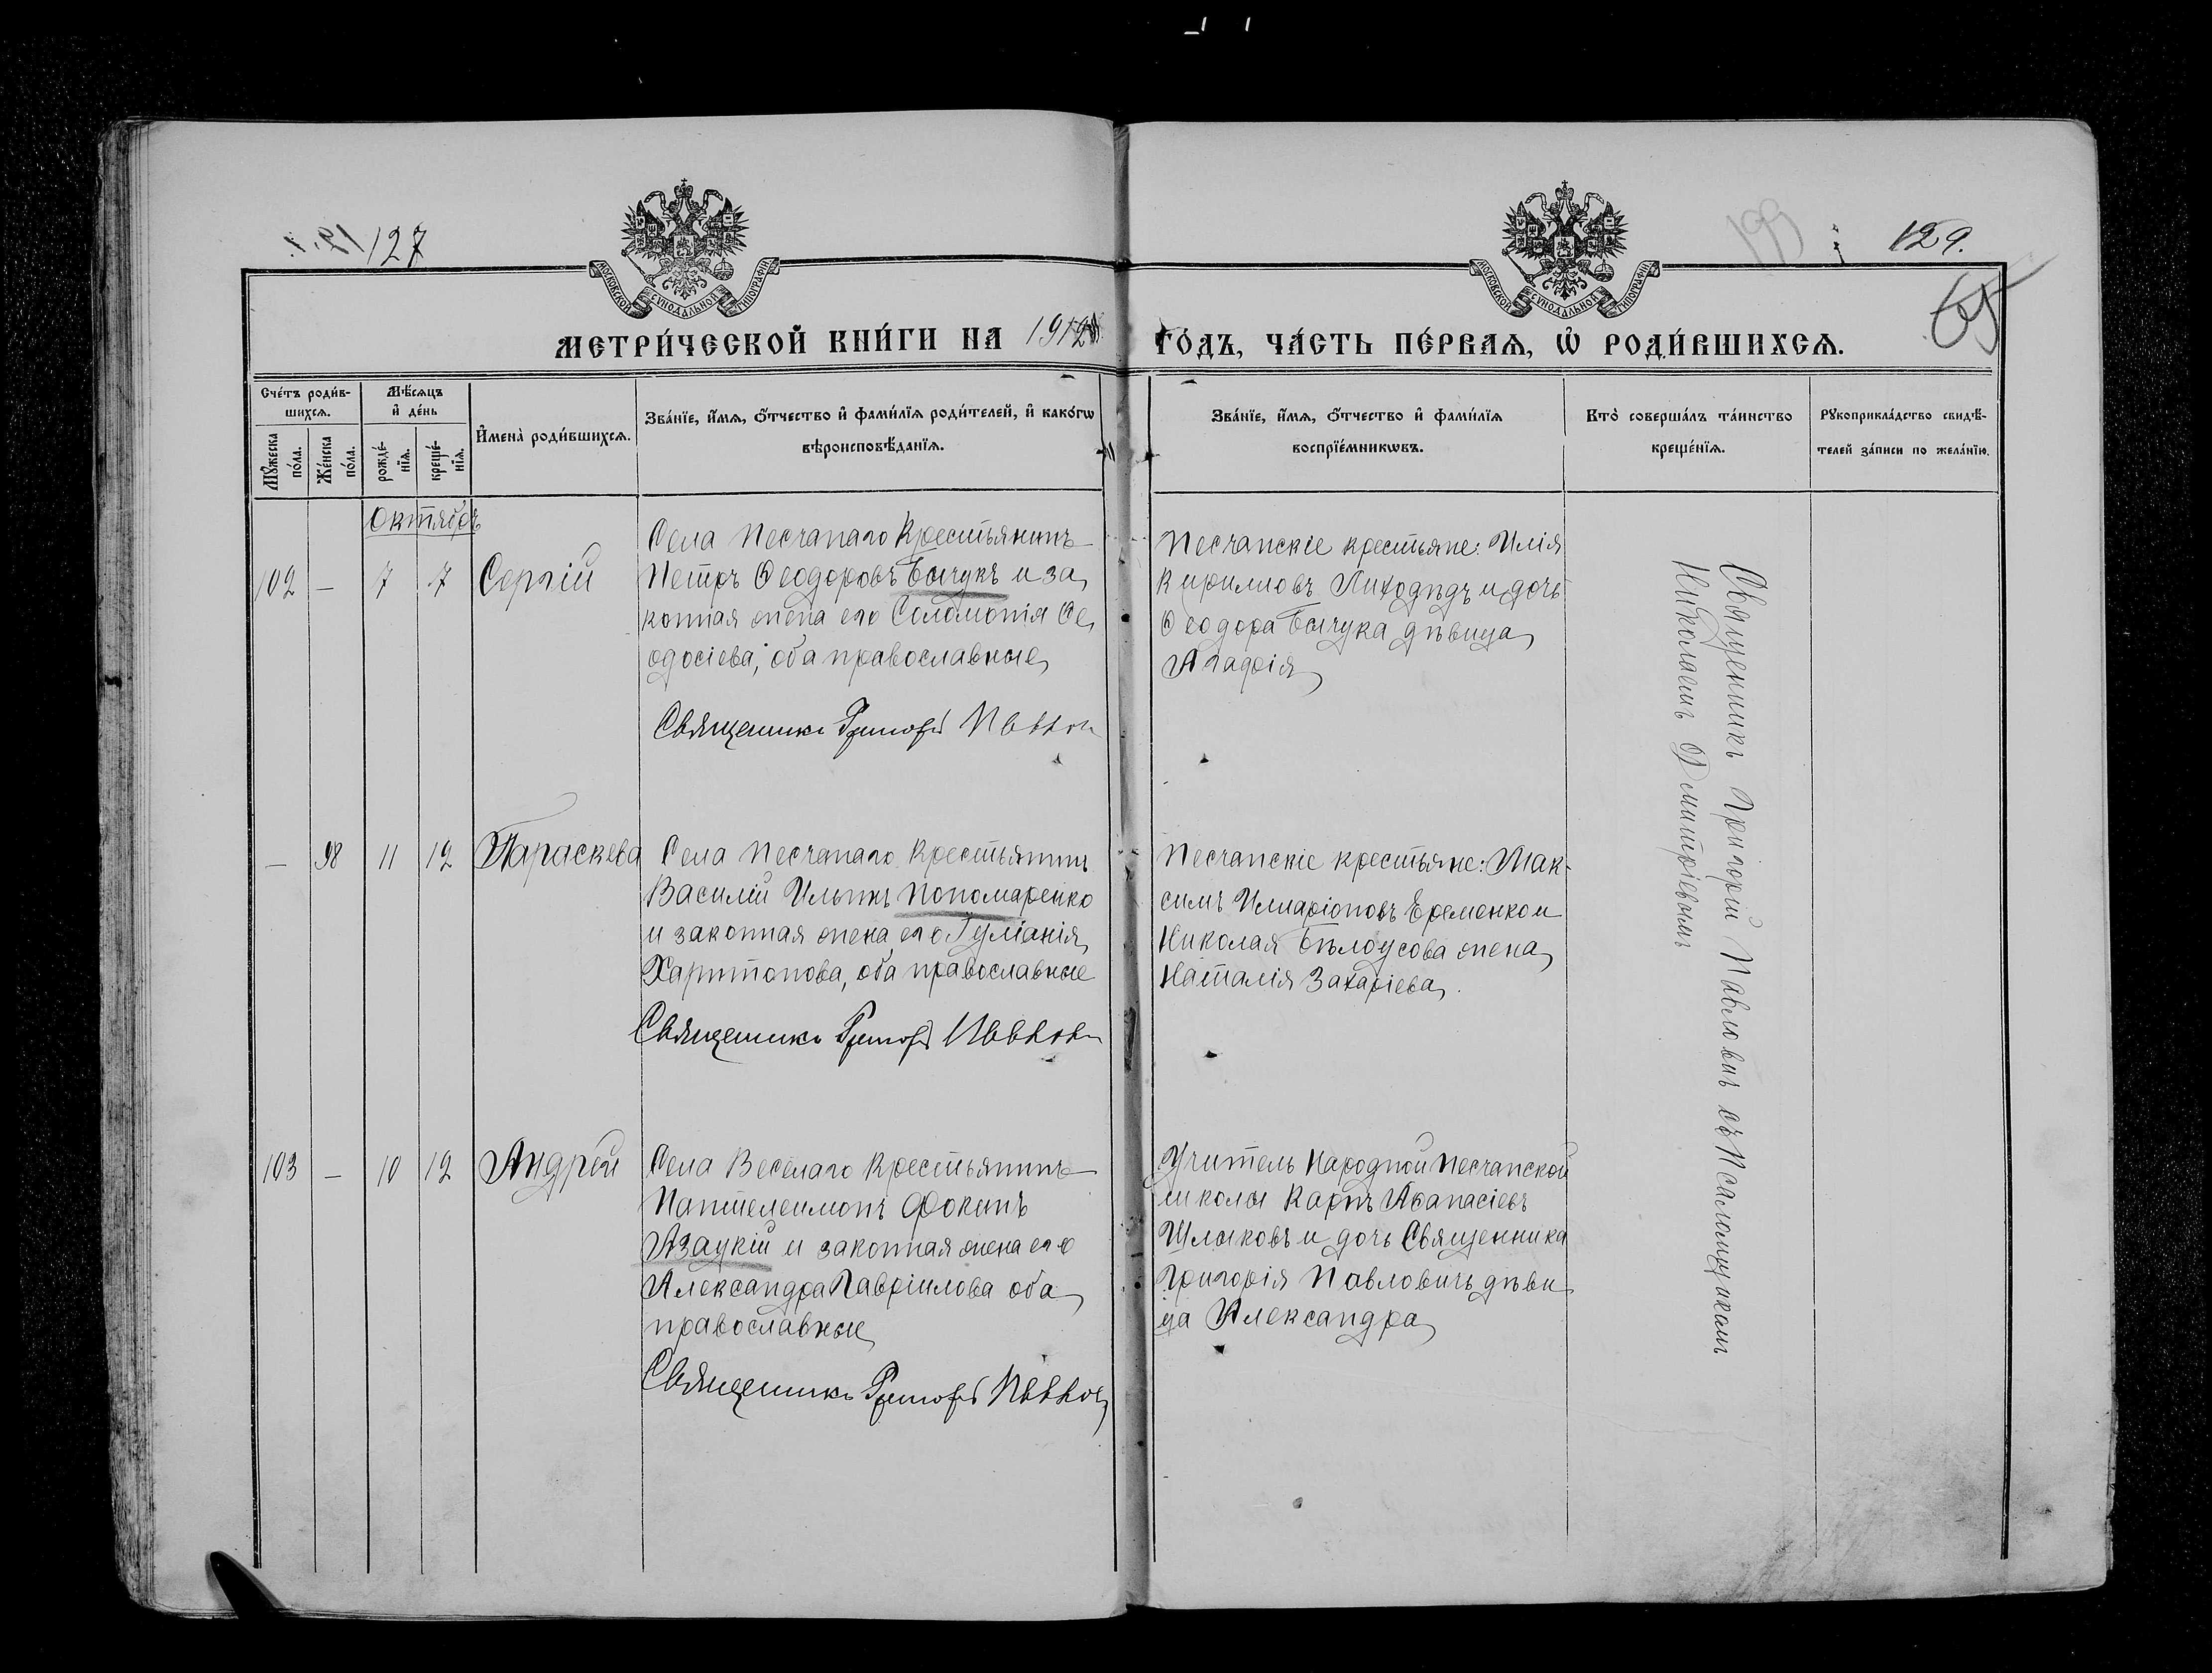 127
129.
65
МОСКОВСКОЙ СѴНОДАЛЬНОЙ ТИПОГРАФІИ
МОСКОВСКОЙ СѴНОДАЛЬНОЙ ТИПОГРАФІИ
МЕТРИ́ЧЕСКОЙ КНИ́ГИ НА 1912 ГО́ДЪ, ЧА́СТЬ ПЕ́РВАЯ, Ѡ҆ РОДИ́ВШИХСЯ.
Сче́тъ роди́в-
шихся.
Мѣ́сяцъ
и҆ де́нь
Мꙋ́жеска
по́ла.
Же́нска
по́ла.
рожде́-
нїя.
креще́-
нїя.
И҆мена̀ роди́вшихся.
Зва́нїе, и҆́мя, ѻ҆́тчество и҆ фами́лїя роди́телей, и҆ како́гѡ
вѣроисповѣ́данїя.
Зва́нїе, и҆́мя, ѻ҆́тчество и҆ фами́лїя
воспрїе́мникѡвъ.
Кто̀ соверша́лъ та́инство
креще́нїя.
Рꙋкоприкла́дство свидѣ́-
телей за́писи по жела́нїю.
Октябрь
102 — 7 7 Сергій
Села Песчанаго Крестьянинъ
Петръ Ѳеодоровъ Бычукъ и за
конная жена его Соломонія Ѳе
одосіева, оба православные
Священникъ Григорій Павлович
Песчанскіе крестьяне: Илія
Кириловъ Лиходѣдъ и дочь
Ѳеодора Бычука дѣвица
Агафія
— 98 11 12 Параскева
Села Песчанаго Крестьянинъ
Василій Ильинъ Пономаренко
и законная жена его Гуліанія
Харитонова, оба православные
Священникъ Григорій Павлович
Песчанскіе крестьяне: Мак-
симъ Илларіоновъ Еременко и
Николая Бѣлоусова жена
Наталія Захаріева.
103 — 10 12 Андрей
Села Веселаго Крестьянинъ
Пантелеимонъ Фокинъ
Азацкій и законная жена его
Александра Гавріилова оба
православные
Священникъ Григорій Павлович
Учитель Народной Песчанской
школы Карпъ Аѳанасіевъ
Шлыковъ и дочь Священника
Григорія Павловичъ дѣви
ца Александра
Священникъ Григорій Павловичъ съ Псаломщикомъ
Николаемъ Дмитріевымъ